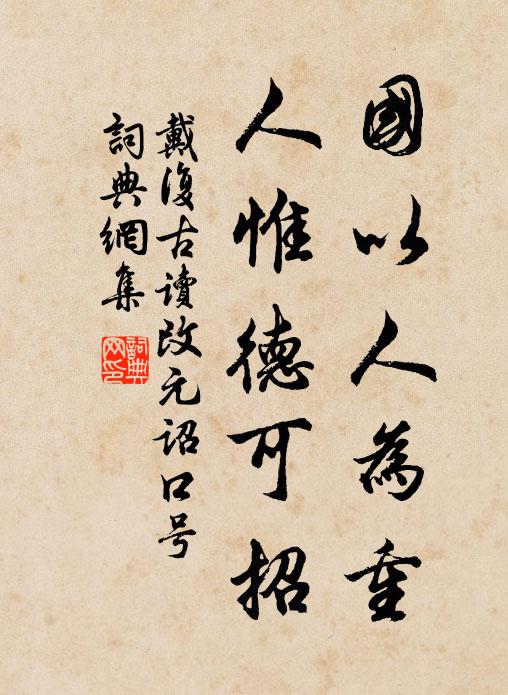 國以人為重
人惟德可招
戴復古讀改元詔口号
詞典網集
詞典網印